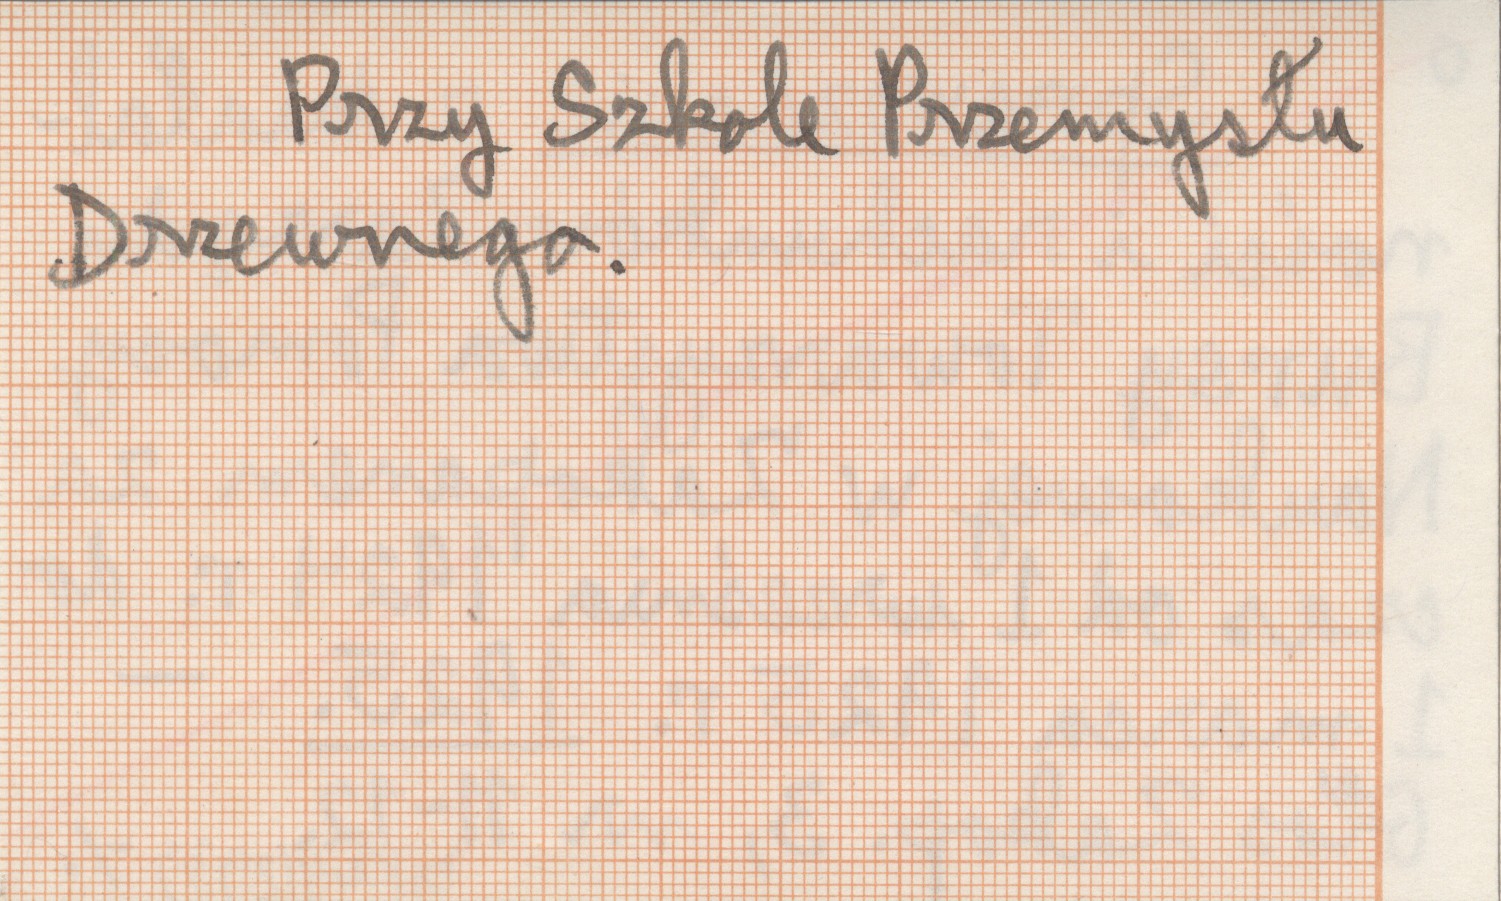 Przy Szkole Przemysłu
Drzewnego.